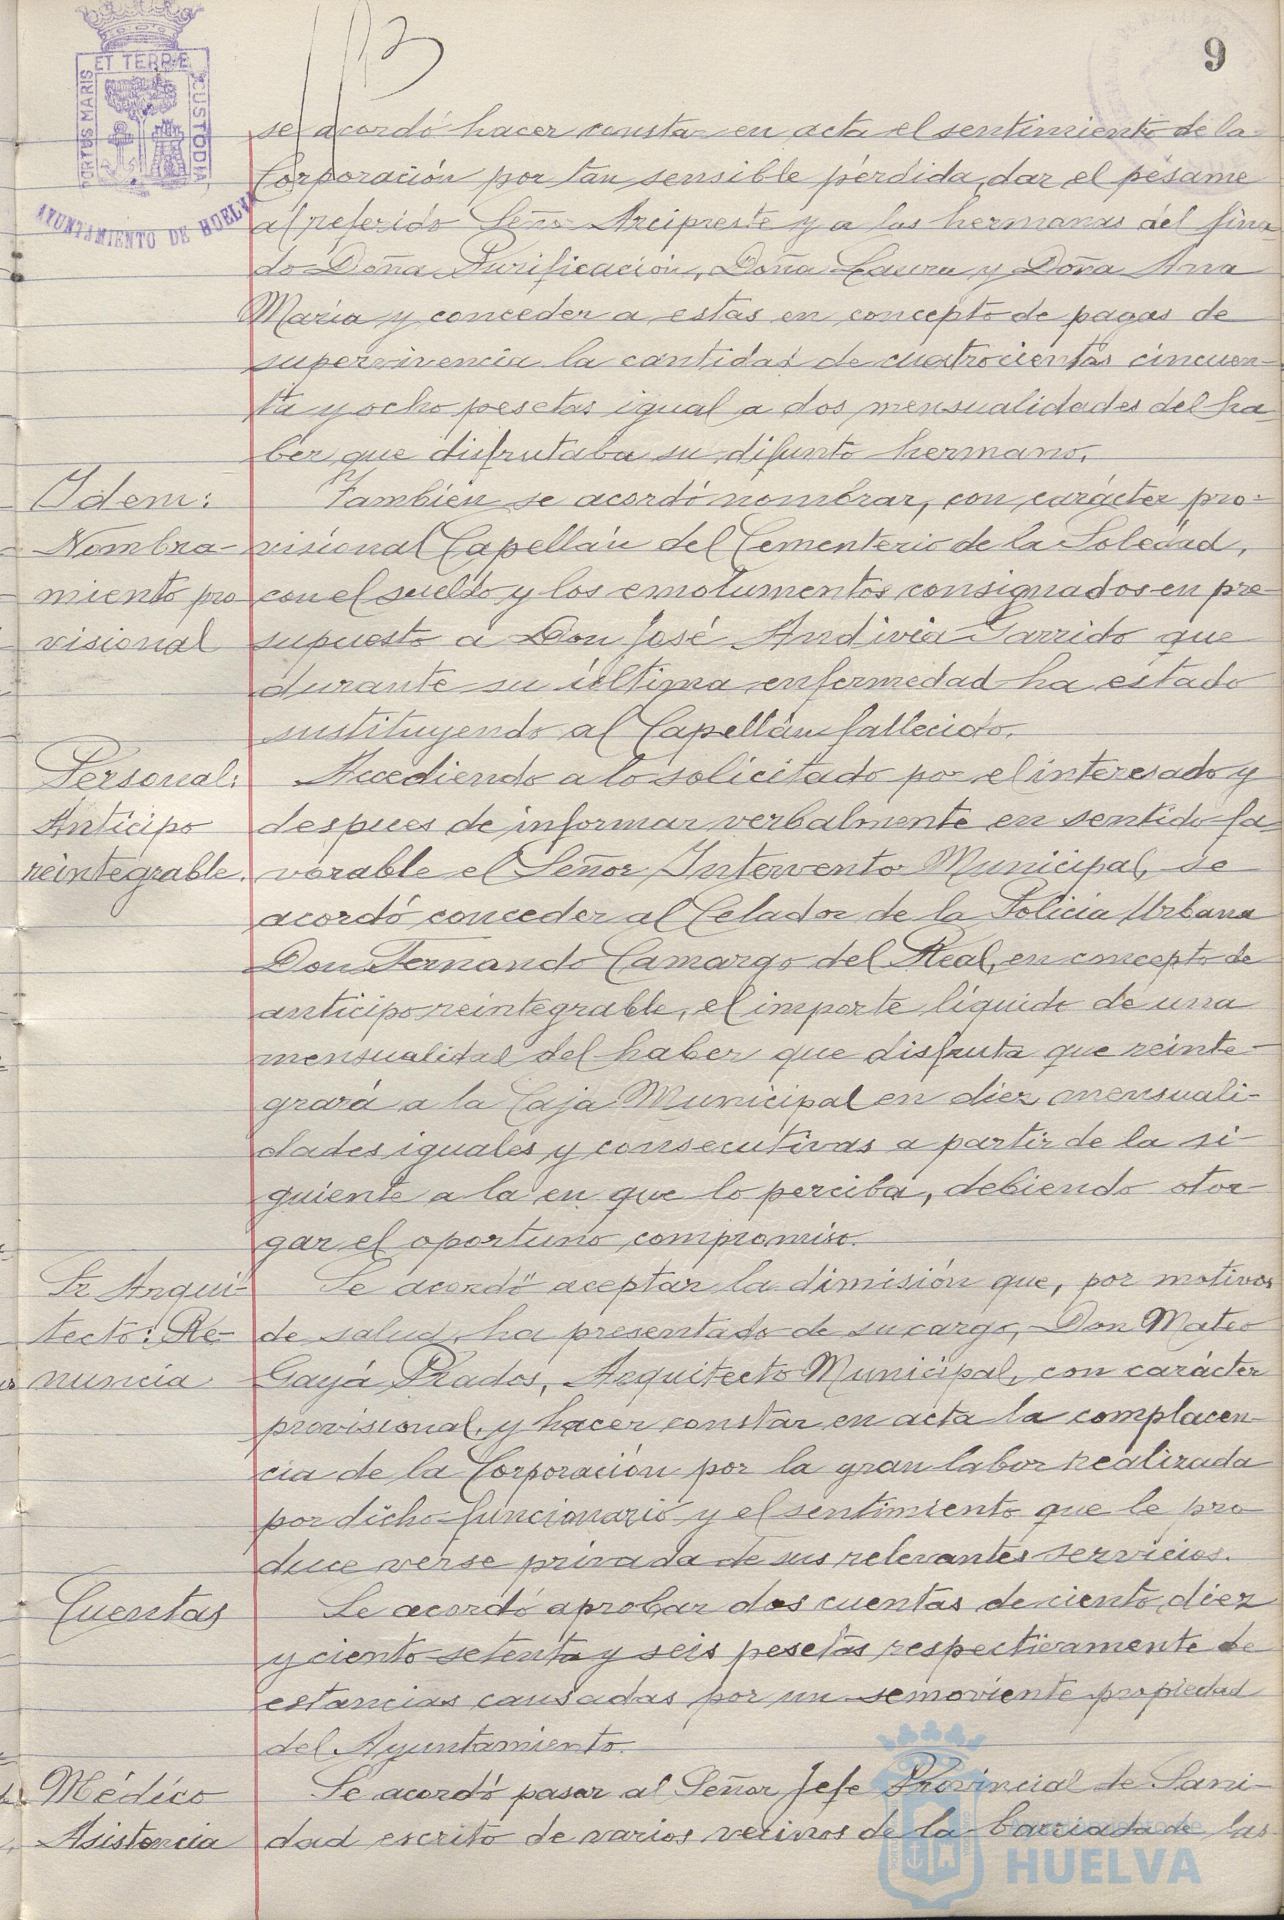 9
ET TERRÆ
PORTUS MARIS
CUSTODIA
AYUNTAMIENTO DE HUELVA
se acordó hacer constar en acta el sentimiento de la
Corporación por tan sensible pérdida, dar el pésame
al referido Señor Arcipreste y a las hermanas del fina-
do Doña Purificación, Doña Laura y Doña Ana
María y conceder a estas en concepto de pagas de
supervivencia la cantidad de cuatrocientas cincuen-
ta y ocho pesetas igual a dos mensualidades del ha-
ber que disfrutaba su difunto hermano.
Idem:
Nombra-
miento pro
visional
También se acordó nombrar, con carácter pro-
visional Capellán del Cementerio de la Soledad,
con el sueldo y los emolumentos consignados en pre-
supuesto a Don José Andivia Garrido que
durante su última enfermedad ha estado
sustituyendo al Capellán fallecido.
Personal:
Anticipo
reintegrable.
Accediendo a lo solicitado por el interesado y
despues de informar verbalmente en sentido fa-
vorable el Señor Interventor Municipal, se
acordó conceder al Celador de la Policia Urbana
Don Fernando Camargo del Real, en concepto de
anticipo reintegrable, el importe líquido de una
mensualidad del haber que disfruta que reinte-
grará a la Caja Municipal en diez mensuali-
dades iguales y consecutivas a partir de la si-
guiente a la en que lo perciba, debiendo otor-
gar el oportuno compromiso.
Sr Arqui-
tecto: Re-
nuncia
Se acordó aceptar la dimisión que, por motivos
de salud, ha presentado de su cargo, Don Mateo
Gayá Prados, Arquitecto Municipal, con carácter
provisional, y hacer constar en acta la complacen-
cia de la Corporación por la gran labor realizada
por dicho funcionario y el sentimiento que le pro-
duce verse privada de sus relevantes servicios.
Cuentas
Se acordó aprobar dos cuentas de ciento diez
y ciento setenta y seis pesetas respectivamente de
estancias causadas por un semoviente propiedad
del Ayuntamiento.
Médico
Asistencia
Se acordó pasar al Señor Jefe Provincial de Sani-
dad escrito de varios vecinos de la barriada de las
Ayuntamiento de
HUELVA